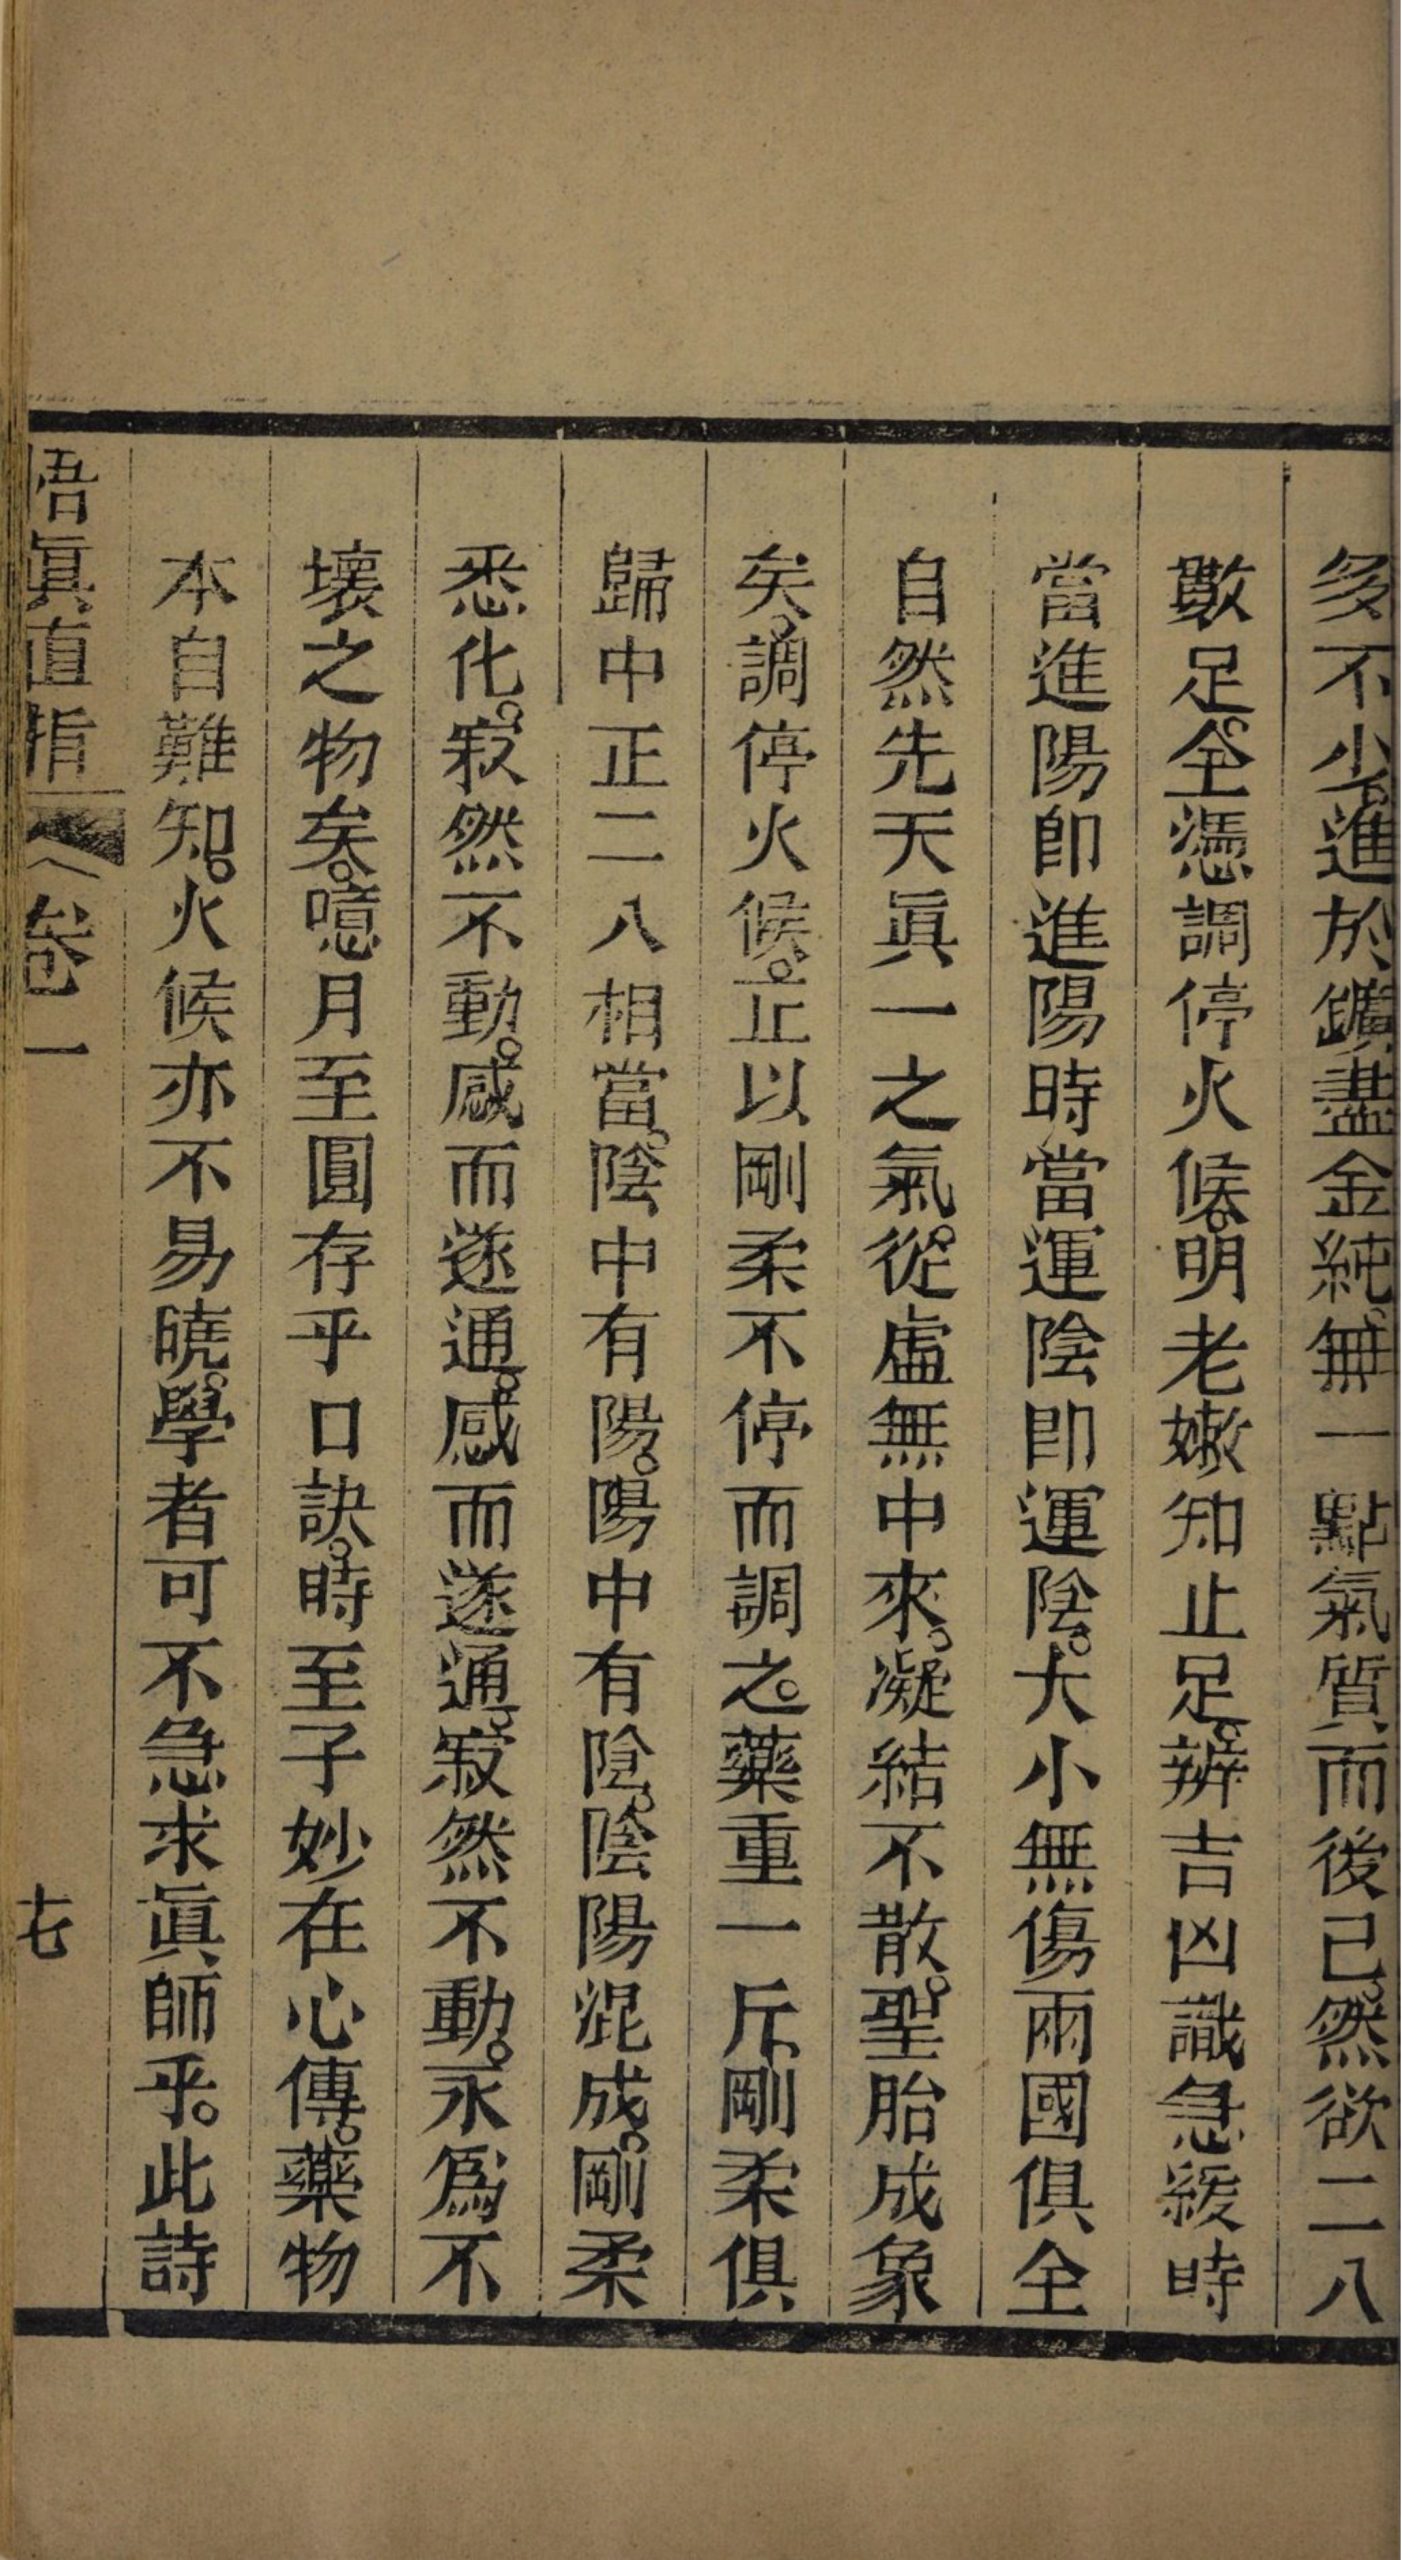 多不少。進於鑛盡金純。無一點氣質而後已。然欲二八
數足。全憑調停火候。明老嫩知止足。辨吉凶識急緩時
當進陽卽進陽時當運陰卽運陰。大小無傷兩國俱全
自然先天眞一之氣。從虛無中來。凝結不散。聖胎成象
矣。調停火候。止以剛柔不停而調之。藥重一斤。剛柔俱
歸中正二八相當。陰中有陽。陽中有陰。陰陽混成。剛柔
悉化。寂然不動。感而遂通。感而遂通。寂然不動。永爲不
壞之物矣。噫月至圓存乎口訣。時至子妙在心傳。藥物
本自難知。火候亦不易曉。學者可不急求眞師乎。此詩
悟眞直指 卷一 十七